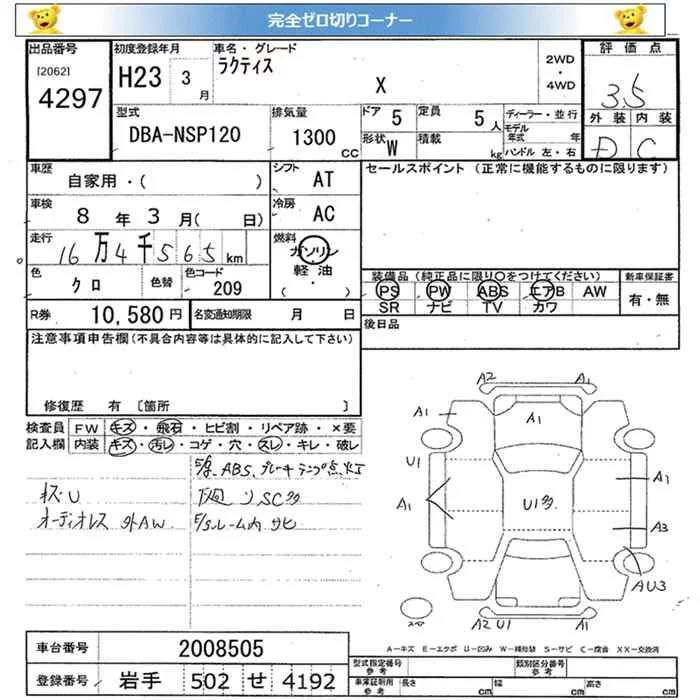 完全ゼロ切りコーナー
出品番号
[2062]
4297
初度登録年月
H23 3月
車名・グレード
ラクティス
X
2WD
・
4WD
評価点
3.5
外装 内装
D C
型式
DBA-NSP120
排気量
1300 CC
ドア 5
定員 5人
形状 W
積載 kg
ディーラー・並行
モデル年式 年
ハンドル 左・右
車歴
自家用・( )
シフト AT
セールスポイント (正常に機能するものに限ります)
車検
8年3月( 日)
冷房 AC
走行
16万4千565km
燃料
ガソリン
軽油
( ・ )
色
クロ
色替
色コード
209
装備品 (純正品に限り○をつけてください)
新車保証書
PS PW ABS エアB AW
SR ナビ TV カワ
有・無
R券 10,580円
名変通知期限 月 日
後日品
注意事項申告欄(不具合内容等は具体的に記入して下さい)
修復歴 有 〔箇所 〕
検査員記入欄
FW キズ・飛石・ヒビ割・リペア跡・×要
内装 キズ・汚レ・コゲ・穴・スレ・キレ・破レ
ABS、ブレーキランプ点灯
キズU
下廻りSC多
オーディオレス 外AW
F/Sルーム内 サビ
A2 A1
A1 A1
U1
A1
A1
U1多
A3
AU3
スペア
A2 U1 A1
A-キズ E-エクボ U-凹み W-補修跡 S-サビ C-腐食 XX-交換済
車台番号 2008505
登録番号 岩手 502 せ 4192
型式指定番号
参考
類別区分番号
参考
車庫証明用
参考
長さ cm
幅 cm
高さ cm